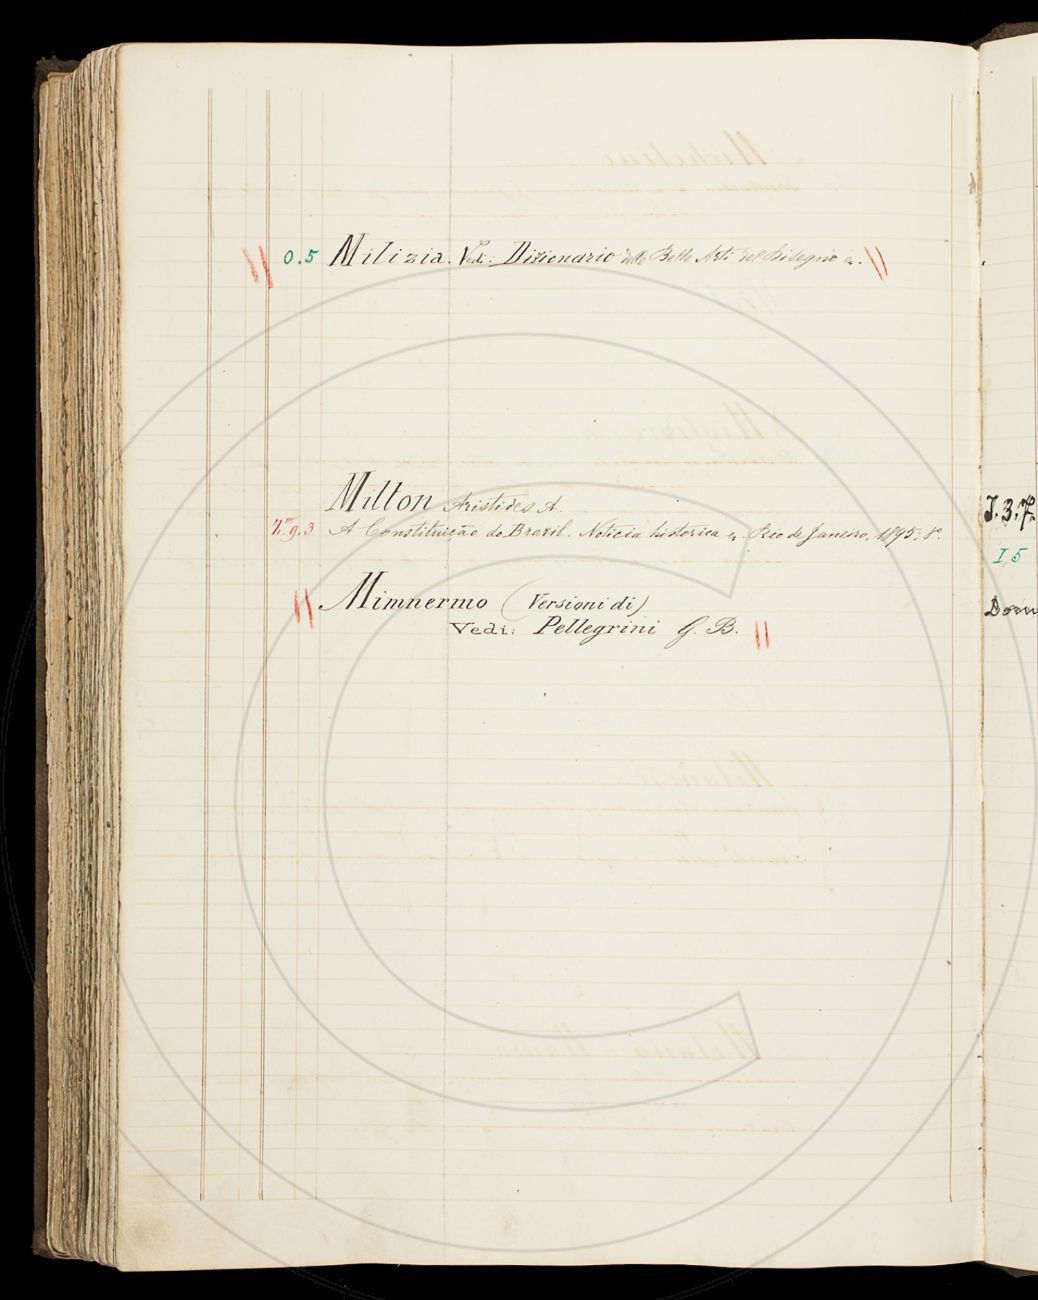 0.5 Milizia. Vedi: Dizionario delle Belle Arti del Disegno &.
Milton Aristides A.
g.3 A Constituição do Brazil. Noticia historica &. Rio de Janeiro, 1895; 8º
Mimnermo (Versioni di)
Vedi: Pellegrini G. B.
J.3.7.
I,5